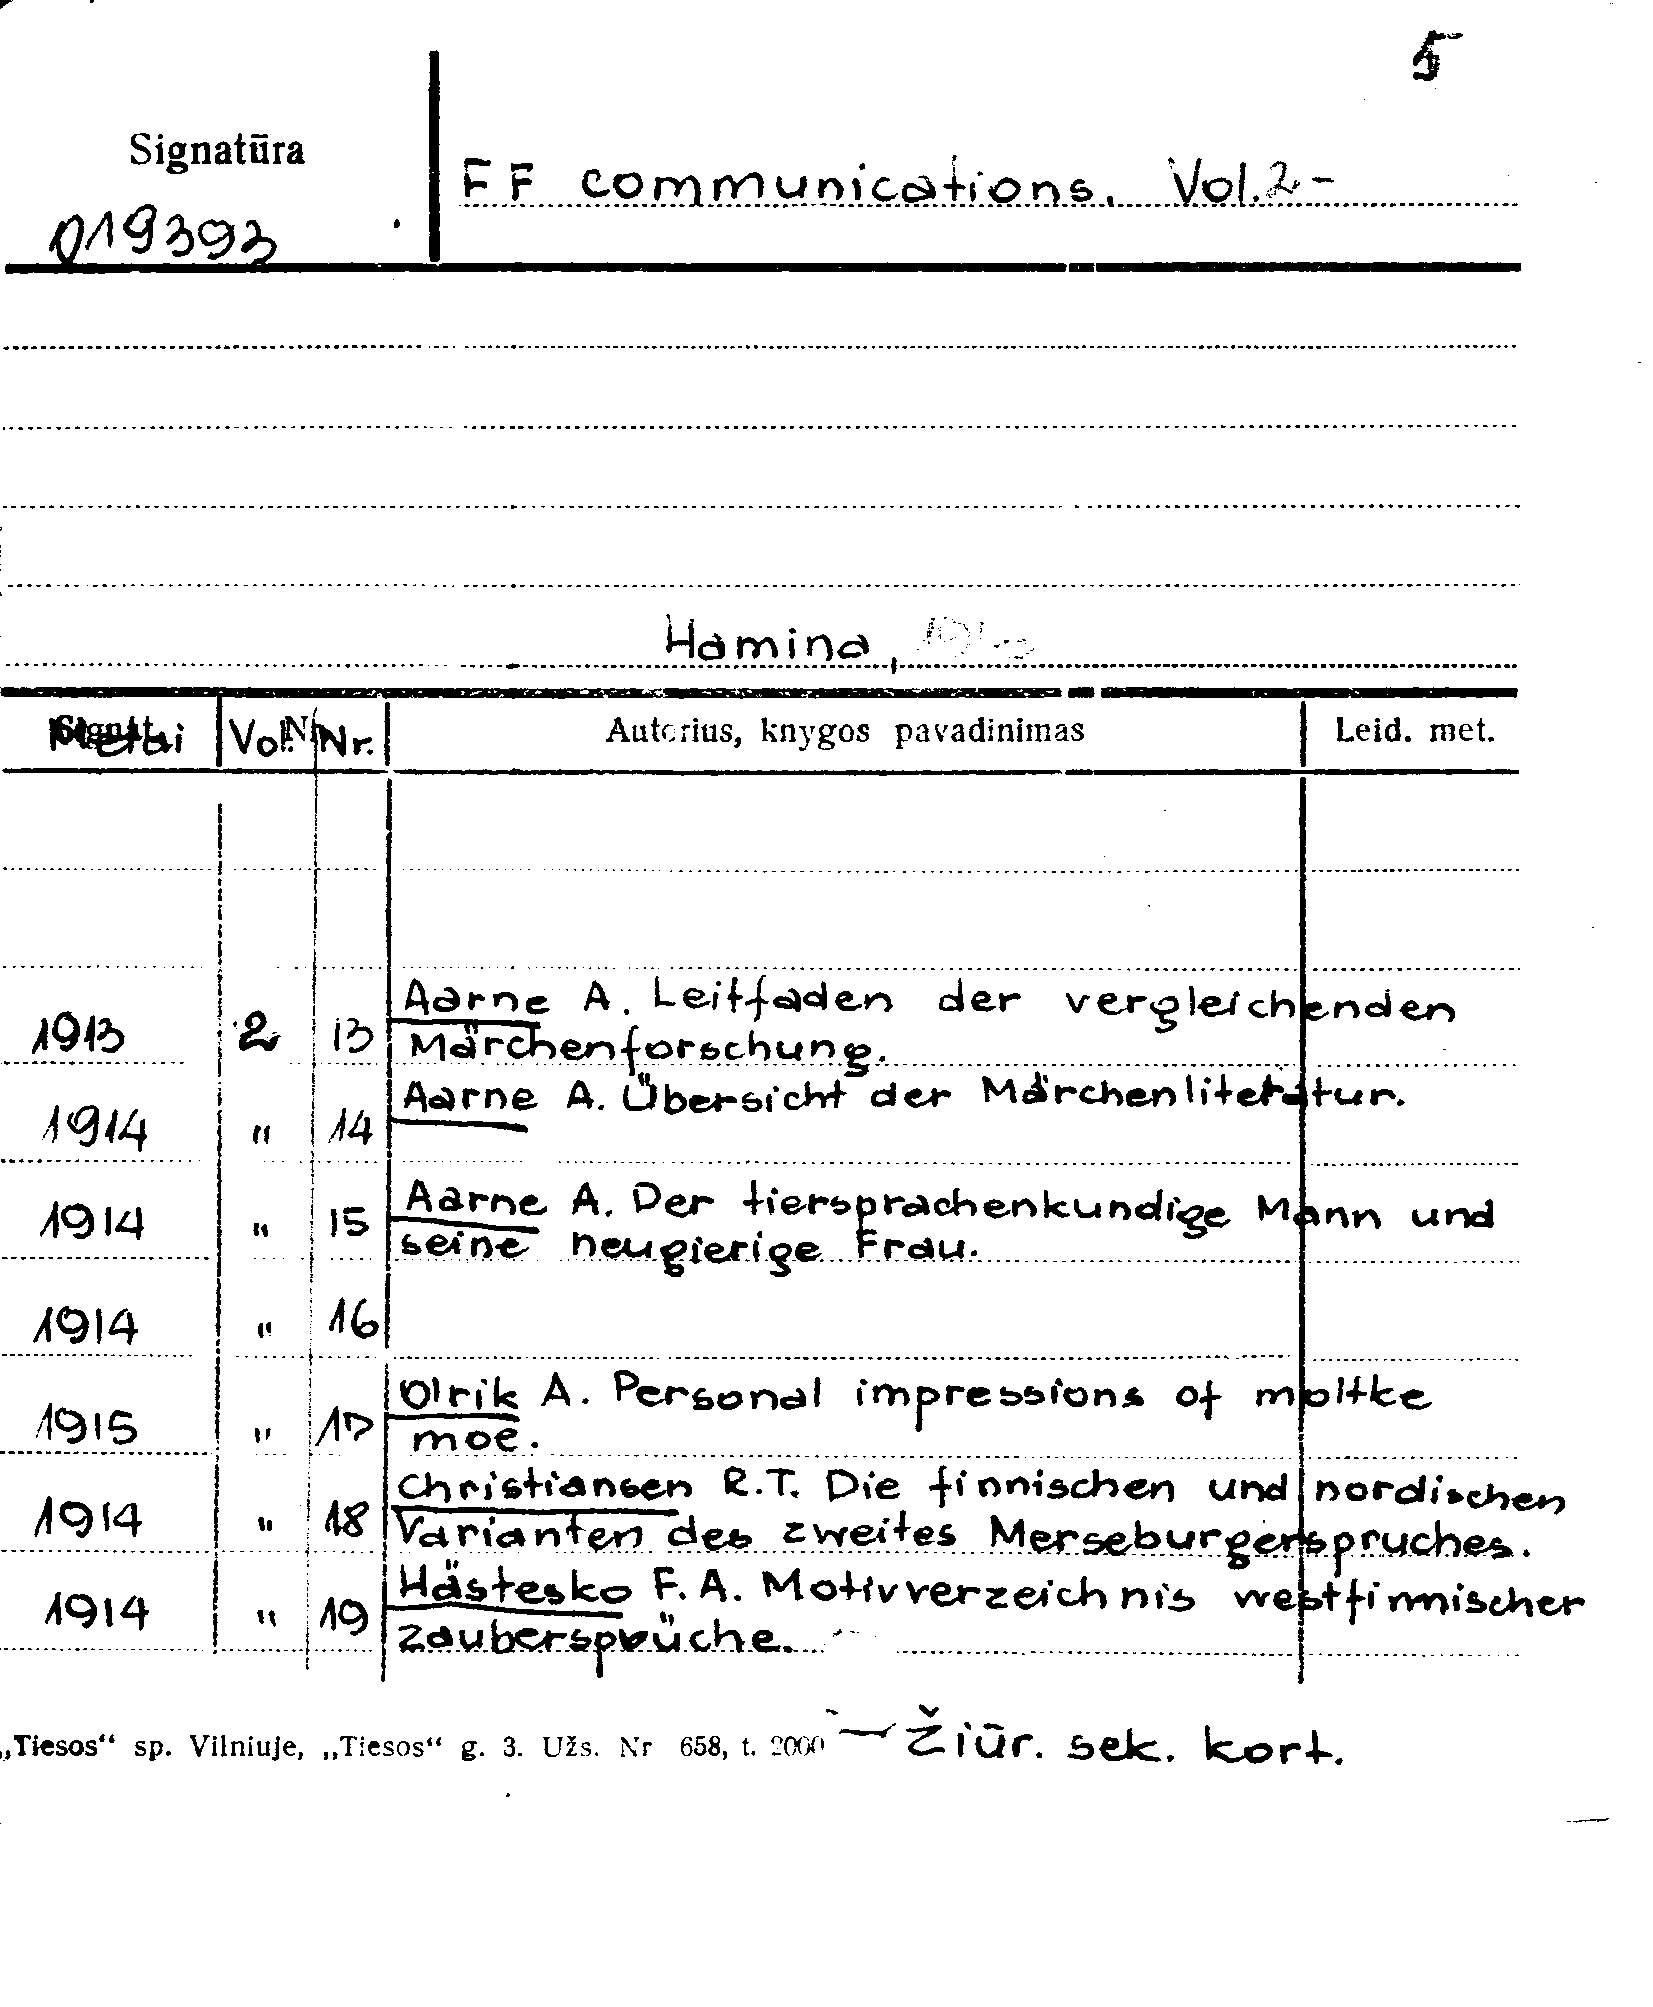 5
Signatūra
FF communications. Vol. 2-
019393
Hamina,
Metai Vol. Nr. Autorius, knygos pavadinimas Leid. met.
Aarne A. Leitfaden der vergleichenden
1913 2 13 Märchenforschung.
Aarne A. Übersicht der Märchenliteratur.
1914 " 14
Aarne A. Der tiersprachenkundige Mann und
1914 " 15 seine neugierige Frau.
1914 " 16
Olrik A. Personal impressions of moltke
1915 " 17 moe.
Christiansen R.T. Die finnischen und nordischen
1914 " 18 Varianten des zweites Merseburgerspruches.
Hästesko F.A. Motivverzeichnis westfinnischer
1914 " 19 zaubersprüche.
„Tiesos“ sp. Vilniuje, „Tiesos“ g. 3. Užs. Nr 658, t. 2000 – Žiūr. sek. kort.